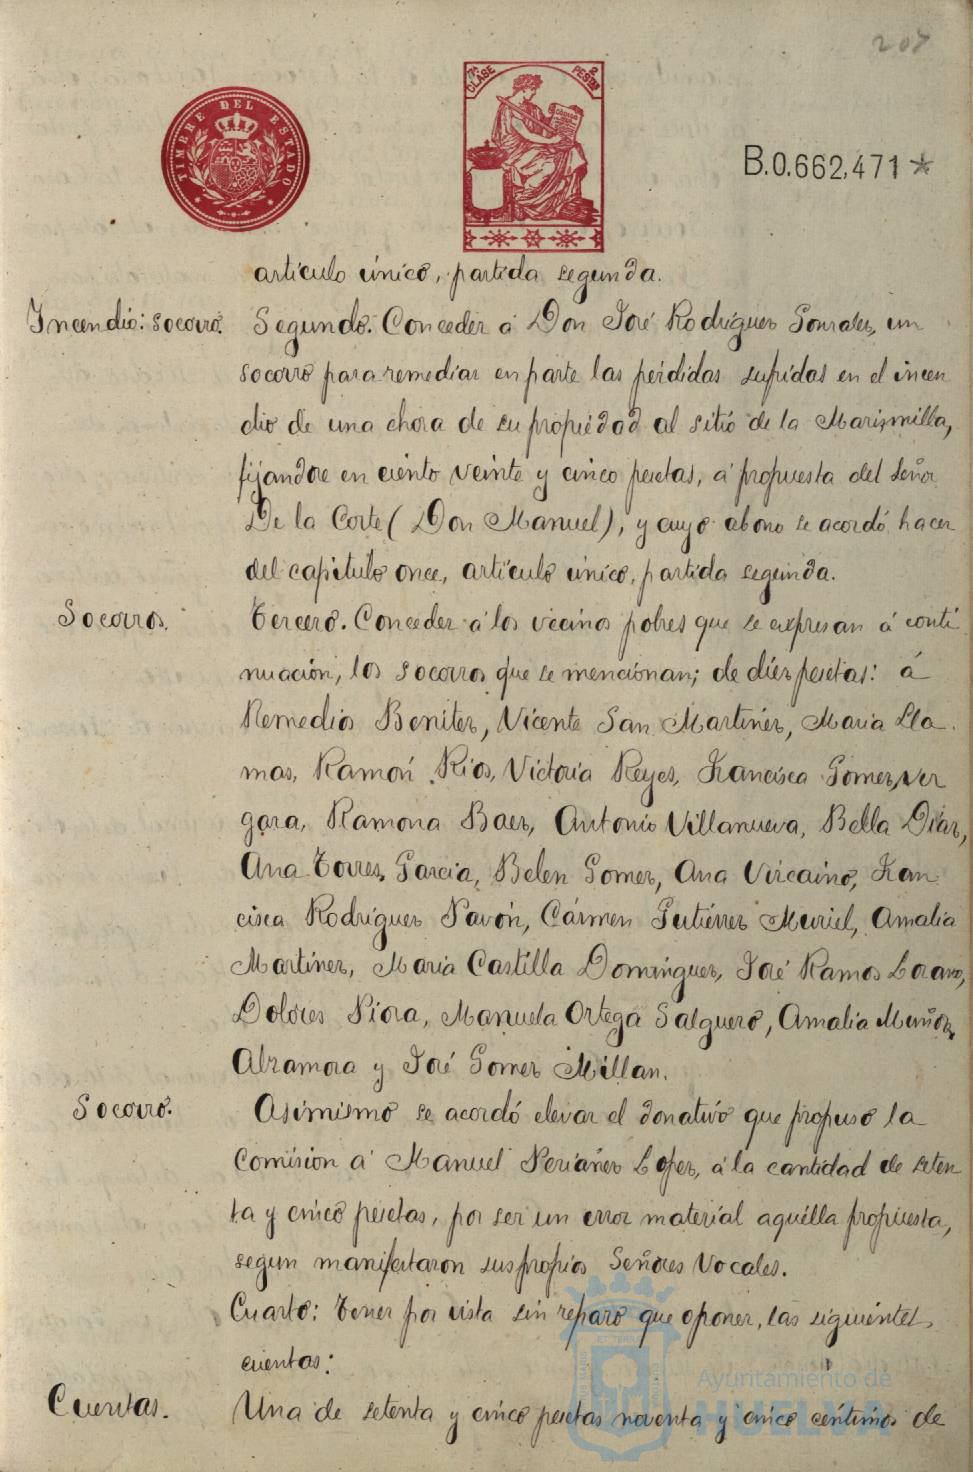 207
TIMBRE DEL ESTADO
7ª CLASE 2 PESTAS
B.0.662,471*
articulo único, partida segunda.
Incendio: socorro. Segundo. Conceder á Don José Rodriguez Gonzalez, un
socorro para remediar en parte las pérdidas sufridas en el incen
dio de una choza de su propiedad al sitio de la Marismilla,
fijandose en ciento veinte y cinco pesetas, á propuesta del Señor
De la Corte (Don Manuel), y cuyo abono se acordó hacer
del capitulo once, articulo único, partida segunda.
Socorros. Tercero. Conceder á los vecinos pobres que se expresan á conti
nuación, los socorros que se mencionan; de diez pesetas: á
Remedio Benitez, Vicente San Martinez, Maria Lla
mas, Ramón Rios, Victoria Reyes, Francisca Gomez, Ver
gara, Ramona Baez, Antonio Villanueva, Bella Diaz,
Ana Torres, Garcia, Belen Gomez, Ana Vizcaino, Fran
cisca Rodriguez Pavón, Cármen Gutiérrez Muriel, Amalia
Martinez, Maria Castilla Dominguez, José Ramos Lozano,
Dolores Piosa, Manuela Ortega Salguero, Amalia Muñoz,
Alzamora y José Gomez Millan.
Socorro. Asimismo se acordó elevar el donativo que propuso la
Comision á Manuel Periañez Lopez, á la cantidad de seten
ta y cinco pesetas, por ser un error material aquélla propuesta,
segun manifestaron sus propios Señores Vocales.
Cuarto: Tener por vista sin reparo que oponer, las siguientes
cuentas:
Cuentas. Una de setenta y cinco pesetas noventa y cinco céntimos de
Ayuntamiento de
HUELVA